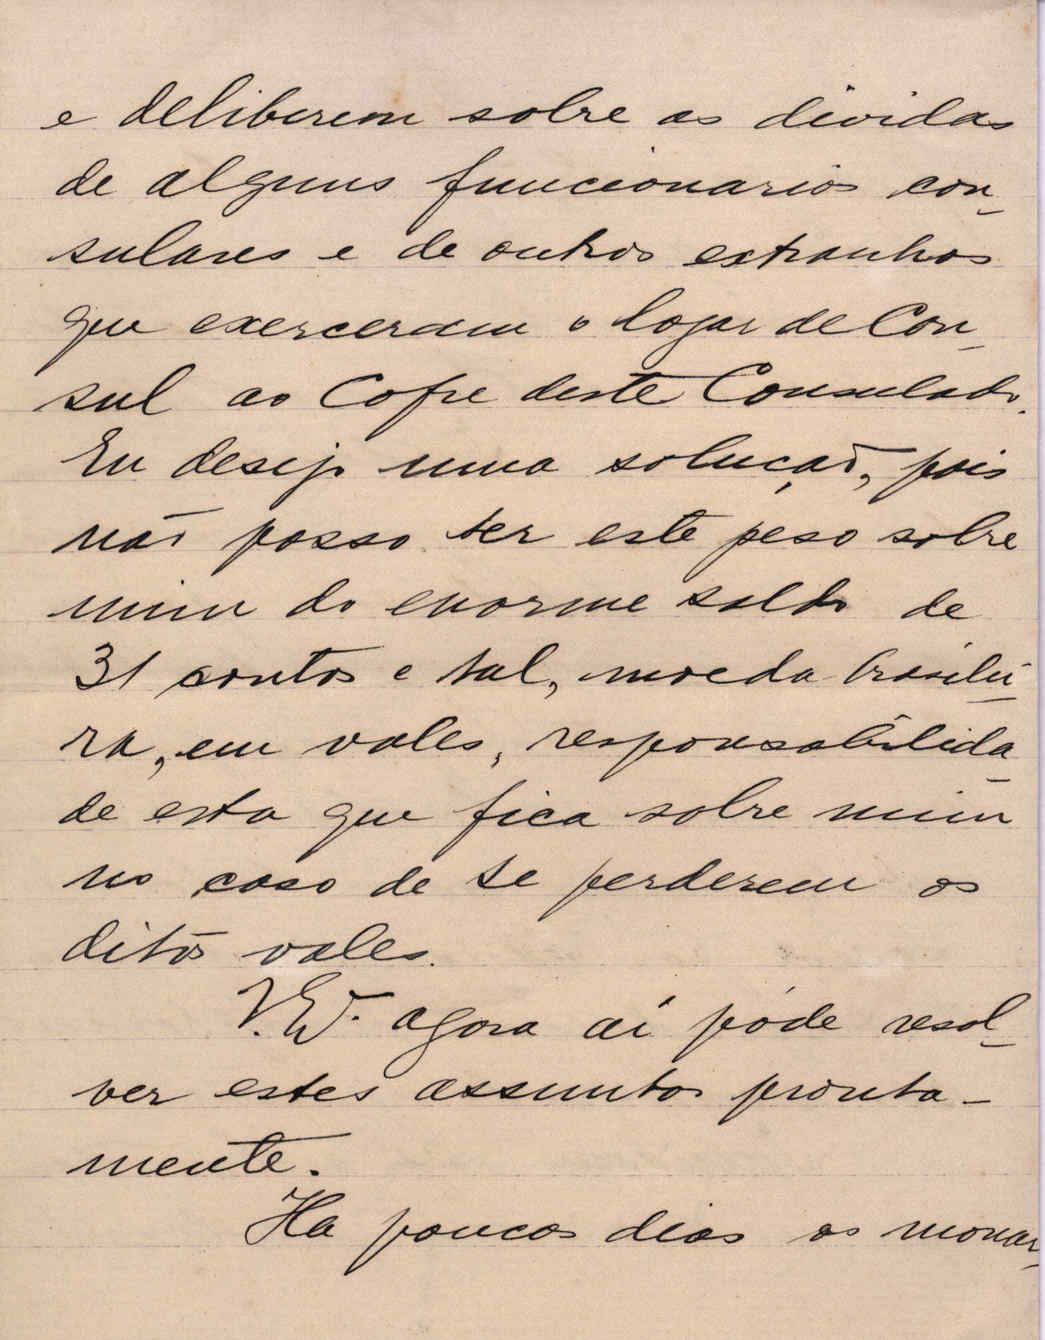 e deliberem sobre as dividas
de alguns funcionarios con-
sulares e de outros extranhos
que exerceram o logar de Con-
sul ao Cofre deste Consulado.
Eu desejo uma solução, pois
não posso ter este peso sobre
mim do enorme saldo de
31 contos e tal, moeda brasilei-
ra, em vales, responsabilida-
de esta que fica sobre mim
no caso de se perderem os
ditos vales.
V. Ex.ª agora aí póde resol-
ver estes assuntos pronta-
mente.
Ha poucos dias os monar-